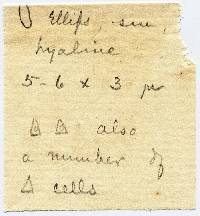 Ellips, sm,
hyaline
5-6 x 3 μ
△ △ also
a number of
△ cells